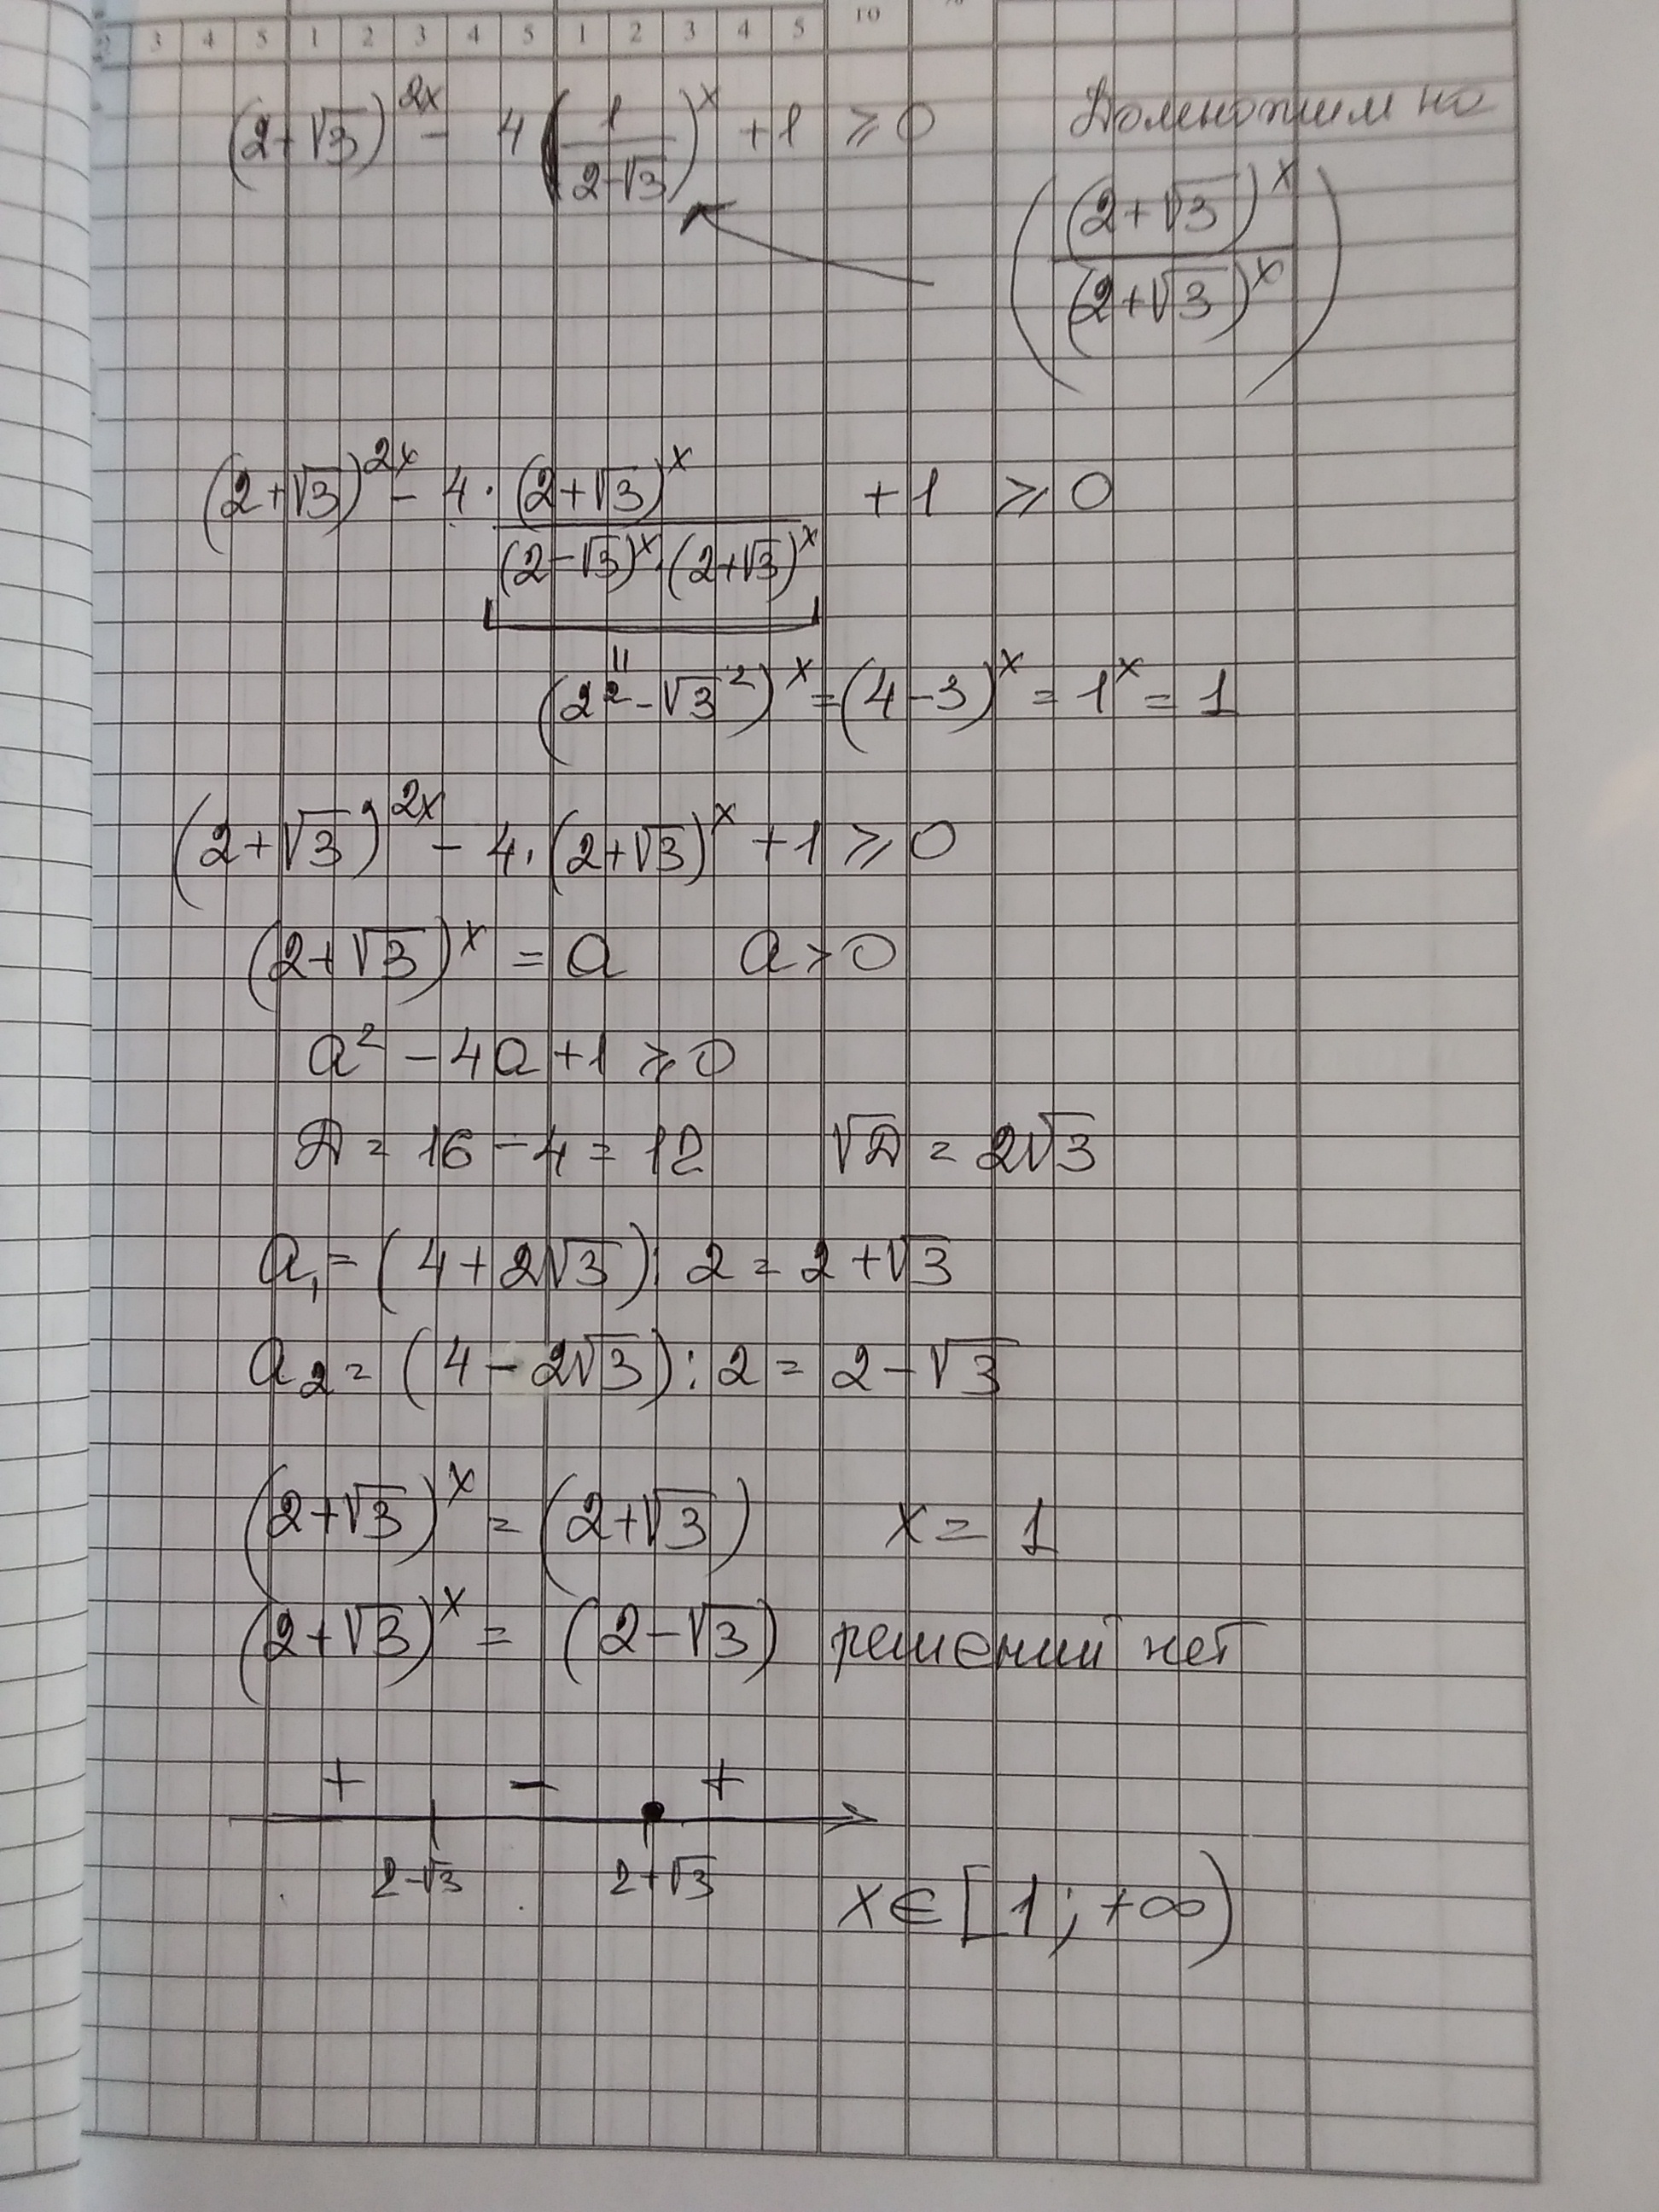 3 4 5 1 2 3 4 5 1 2 3 4 5 10
(2+√3)^2x - 4(1/(2-√3))^x +1 ≥ 0 Домножим на
((2+√3)^x/(2+√3)^x)
(2+√3)^2x - 4·(2+√3)^x/((2-√3)^x·(2+√3)^x) +1 ≥ 0
=
(2²-√3²)^x = (4-3)^x = 1^x = 1
(2+√3)^2x - 4·(2+√3)^x +1 ≥ 0
(2+√3)^x = a a > 0
a² - 4a + 1 ≥ 0
Д = 16 - 4 = 12 √Д = 2√3
a₁ = (4+2√3) : 2 = 2+√3
a₂ = (4-2√3) : 2 = 2-√3
(2+√3)^x = (2+√3) x = 1
(2+√3)^x = (2-√3) решений нет
+ - +
2-√3 2+√3
x ∈ [1; +∞)